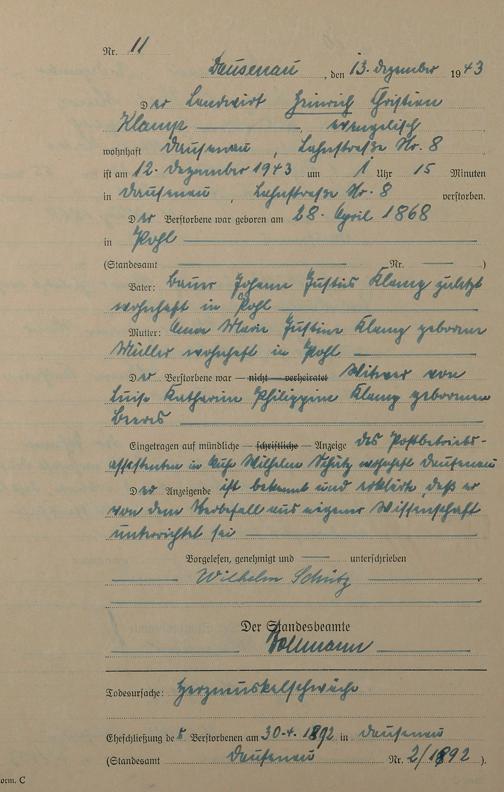 Nr. 11
Dausenau, den 13. Dezember 1943
Der Landwirt Heinrich Christian
Klamp, evangelisch
wohnhaft Dausenau, Lahnstraße Nr. 8
ist am 12. Dezember 1943 um 1 Uhr 15 Minuten
in Dausenau, Lahnstraße Nr. 8 verstorben.
Der Verstorbene war geboren am 28. April 1868
in Pohl
(Standesamt Nr. )
Vater: Bauer Johann Justus Klamp zuletzt
wohnhaft in Pohl
Mutter: Anna Marie Justine Klamp geborene
Müller wohnhaft in Pohl
Der Verstorbene war — nicht — verheiratet Witwer von
Luise Katharine Philippine Klamp geborenen
Beeres
Eingetragen auf mündliche — schriftliche — Anzeige des Postbetriebs-
assistenten Wilhelm Schütz wohnhaft Dausenau
Der Anzeigende ist bekannt und erklärte, daß er
von dem Sterbefall aus eigener Wissenschaft
unterrichtet sei
Vorgelesen, genehmigt und unterschrieben
Wilhelm Schütz
Der Standesbeamte
Bollmann
Todesursache: Herzmuskelschwäche
Eheschließung des Verstorbenen am 30.4.1892 in Dausenau
(Standesamt Dausenau Nr. 2/1892).
orm. C